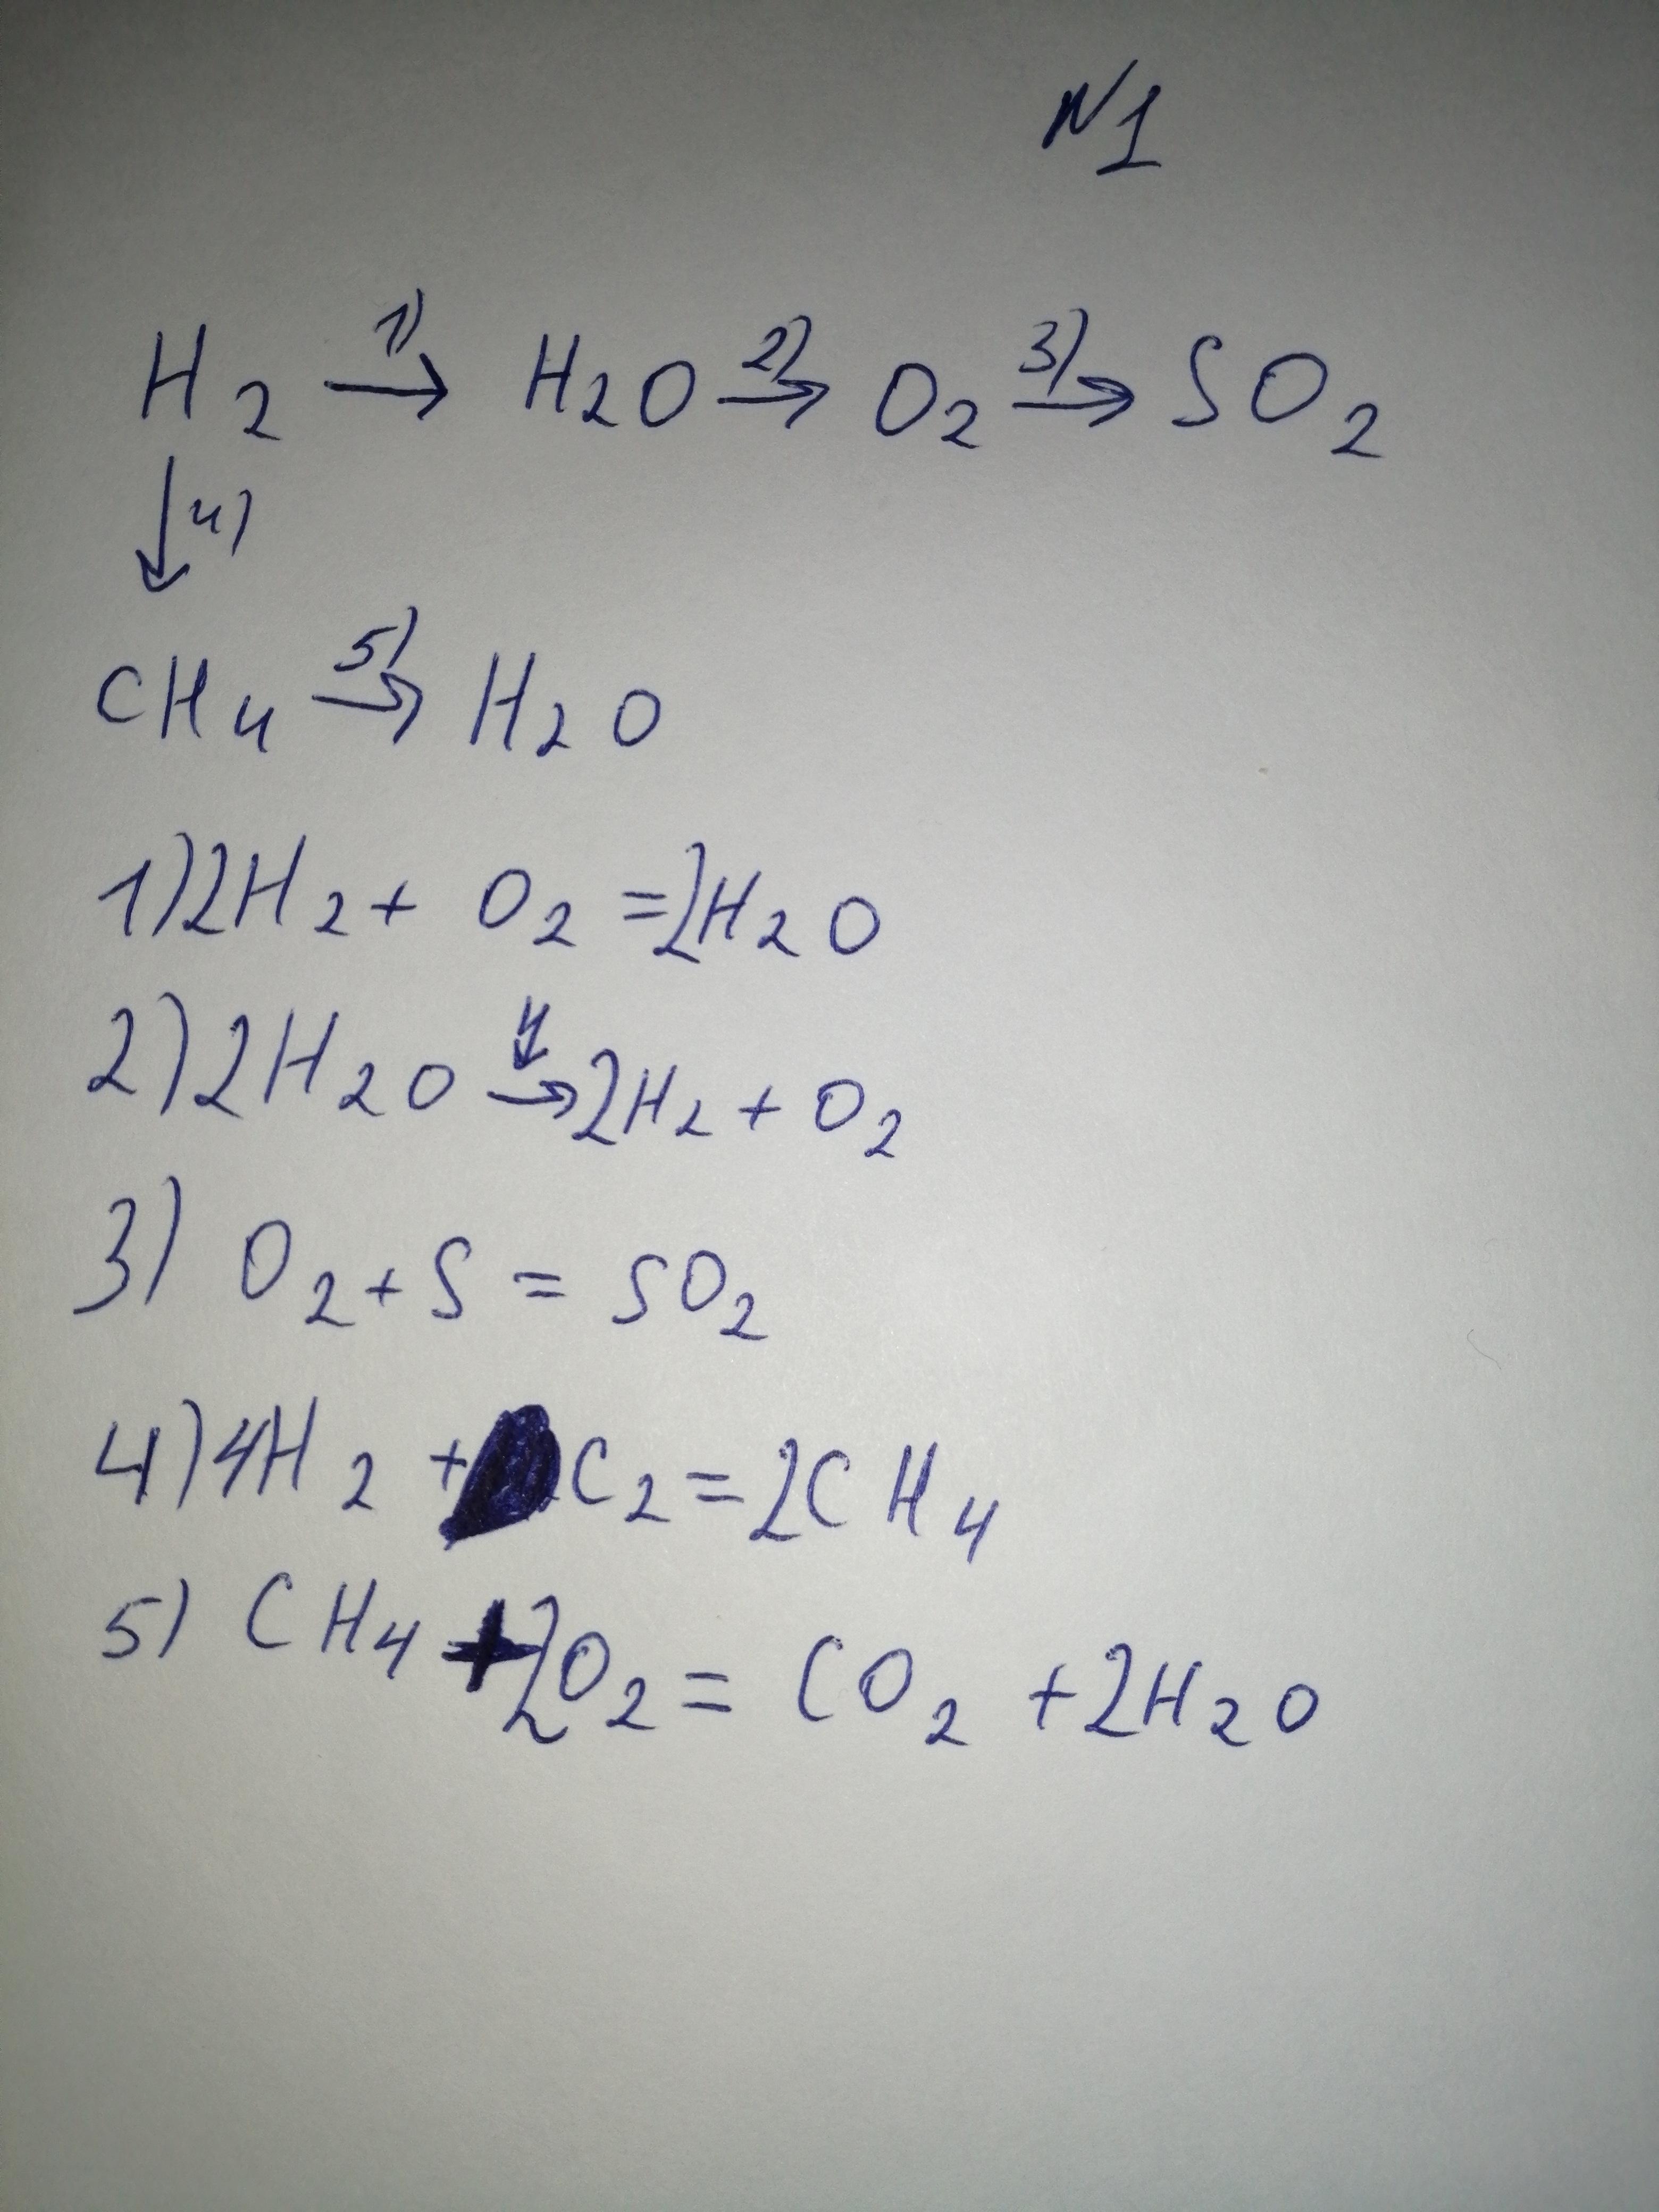 N1
H2 1)→ H2O 2)→ O2 3)→ SO2
↓4)
CH4 5)→ H2O
1)2H2+ O2 =2H2O
2)2H2O →2H2+O2
3) O2+S = SO2
4)4H2 + C2=2CH4
5) CH4+2O2= CO2 +2H2O